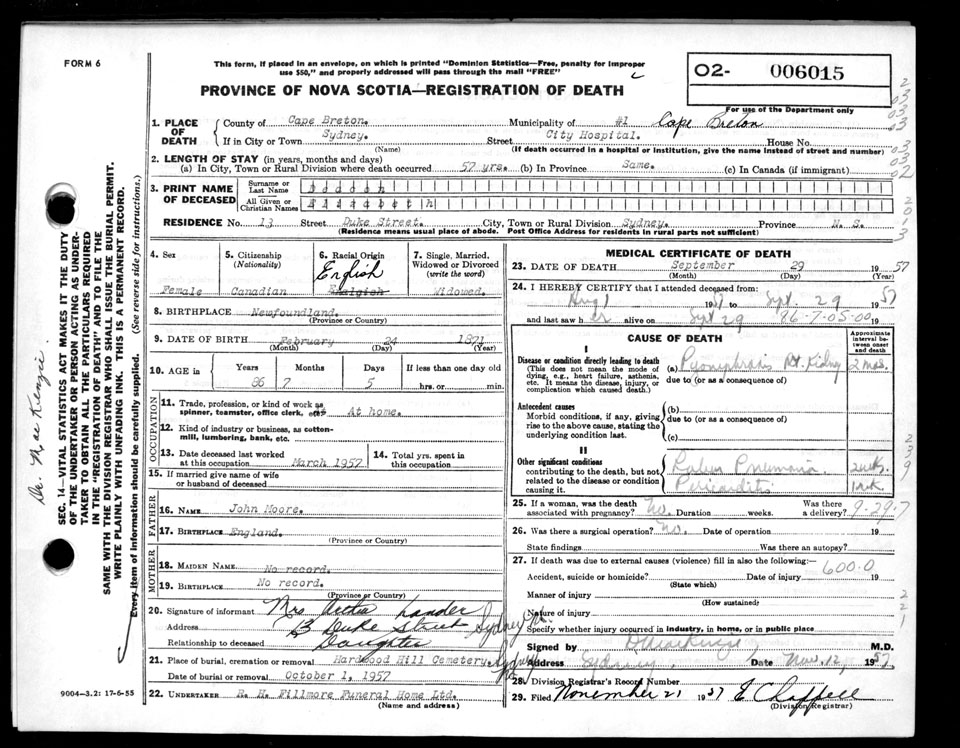 FORM 6
This form, if placed in an envelope, on which is printed "Dominion Statistics—Free, penalty for improper
use $50," and properly addressed will pass through the mail "FREE"
O2- 006015
For use of the Department only
PROVINCE OF NOVA SCOTIA—REGISTRATION OF DEATH
1. PLACE OF DEATH
County of Cape Breton. Municipality of #1 Cape Breton
If in City or Town Sydney. Street City Hospital. House No.
(Name) (If death occurred in a hospital or institution, give the name instead of street and number)
2. LENGTH OF STAY (in years, months and days)
(a) In City, Town or Rural Division where death occurred 57 yrs. (b) In Province Same. (c) In Canada (if immigrant)
3. PRINT NAME OF DECEASED
Surname or Last Name
All Given or Christian Names Elizabeth
RESIDENCE No. 13 Street Duke Street. City, Town or Rural Division Sydney. Province N. S.
(Residence means usual place of abode. Post Office Address for residents in rural parts not sufficient)
4. Sex
Female
5. Citizenship
(Nationality)
Canadian
6. Racial Origin
English
7. Single, Married, Widowed or Divorced
(write the word)
Widowed.
8. BIRTHPLACE Newfoundland.
(Province or Country)
9. DATE OF BIRTH February 24 1871
(Month) (Day) (Year)
10. AGE in Years Months Days If less than one day old
86 7 5 hrs. or min.
OCCUPATION
11. Trade, profession, or kind of work as
spinner, teamster, office clerk, etc. At home.
12. Kind of industry or business, as cotton-
mill, lumbering, bank, etc.
13. Date deceased last worked
at this occupation March 1957
14. Total yrs. spent in
this occupation
15. If married give name of wife
or husband of deceased
FATHER
16. NAME John Moore.
17. BIRTHPLACE England.
(Province or Country)
MOTHER
18. MAIDEN NAME No record.
19. BIRTHPLACE No record.
(Province or Country)
20. Signature of informant Mrs Lander
Address 13 Duke Street Sydney
Relationship to deceased Daughter
21. Place of burial, cremation or removal Hardwood Hill Cemetery, Sydney
Date of burial or removal October 1, 1957
22. UNDERTAKER R. H. Fillmore Funeral Home Ltd.
(Name and address)
MEDICAL CERTIFICATE OF DEATH
23. DATE OF DEATH September 29 1957
(Month) (Day) (Year)
24. I HEREBY CERTIFY that I attended deceased from:
Aug 1 1957 to Sept. 29 1957
and last saw her alive on Sept 29 86-7-05-00 19
CAUSE OF DEATH
Approximate interval between onset and death
I
Disease or condition directly leading to death
(This does not mean the mode of
dying, e.g., heart failure, asthenia,
etc. It means the disease, injury, or
complication which caused death.)
(a) Pyonephrosis Rt. Kidney 2 mos.
due to (or as a consequence of)
Antecedent causes
Morbid conditions, if any, giving
rise to the above cause, stating the
underlying condition last.
(b)
due to (or as a consequence of)
(c)
II
Other significant conditions
contributing to the death, but not
related to the disease or condition
causing it.
Lobar Pneumonia 2 wks.
Pericarditis 1 wk
25. If a woman, was the death
associated with pregnancy? No. Duration weeks. Was there
a delivery? 9-29-7
26. Was there a surgical operation? No. Date of operation 19
State findings Was there an autopsy?
27. If death was due to external causes (violence) fill in also the following:— 600.0
Accident, suicide or homicide? Date of injury 19
(State which)
Manner of injury
(How sustained)
Nature of injury
Specify whether injury occurred in industry, in home, or in public place
Signed by M.D.
Address Sydney, Date Nov. 12, 1957
28. Division Registrar's Record Number
29. Filed November 21 1957 E Chappell
(Division Registrar)
9004-3.2: 17-6-55
Dr. MacKenzie
SEC. 14—VITAL STATISTICS ACT MAKES IT THE DUTY
OF THE UNDERTAKER OR PERSON ACTING AS UNDER-
TAKER TO OBTAIN ALL THE PARTICULARS REQUIRED
IN THE "REGISTRATION OF DEATH" AND TO FILE THE
SAME WITH THE DIVISION REGISTRAR WHO SHALL ISSUE THE BURIAL PERMIT.
WRITE PLAINLY WITH UNFADING INK. THIS IS A PERMANENT RECORD.
Every item of information should be carefully supplied. (See reverse side for instructions.)